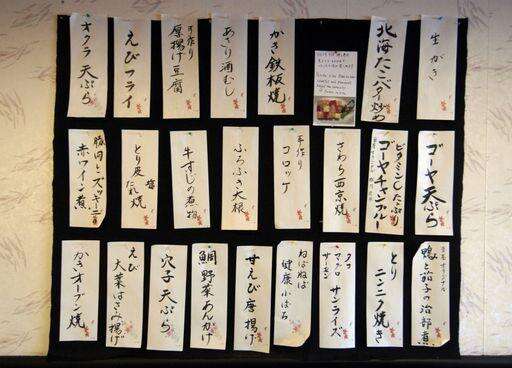 生がき
北海たこバター炒め
かき鉄板焼
あさり酒むし
手作り
厚揚げ豆腐
えびフライ
オクラ天ぷら
ゴーヤ天ぷら
ビタミンCたっぷり
ゴーヤチャンプルー
さわら西京焼
手作り
コロッケ
ふろふき大根
牛すじの煮物
とり皮
塩
たれ焼
豚肉とズッキーニの
赤ワイン煮
鴨と茄子の治部煮
とり
ニンニク焼き
タコ
マグロ
サーモン
サンライズ
ねばねば
健康小ばち
甘えび唐揚げ
鯛野菜あんかけ
穴子天ぷら
えび
大葉はさみ揚げ
かきオーブン焼